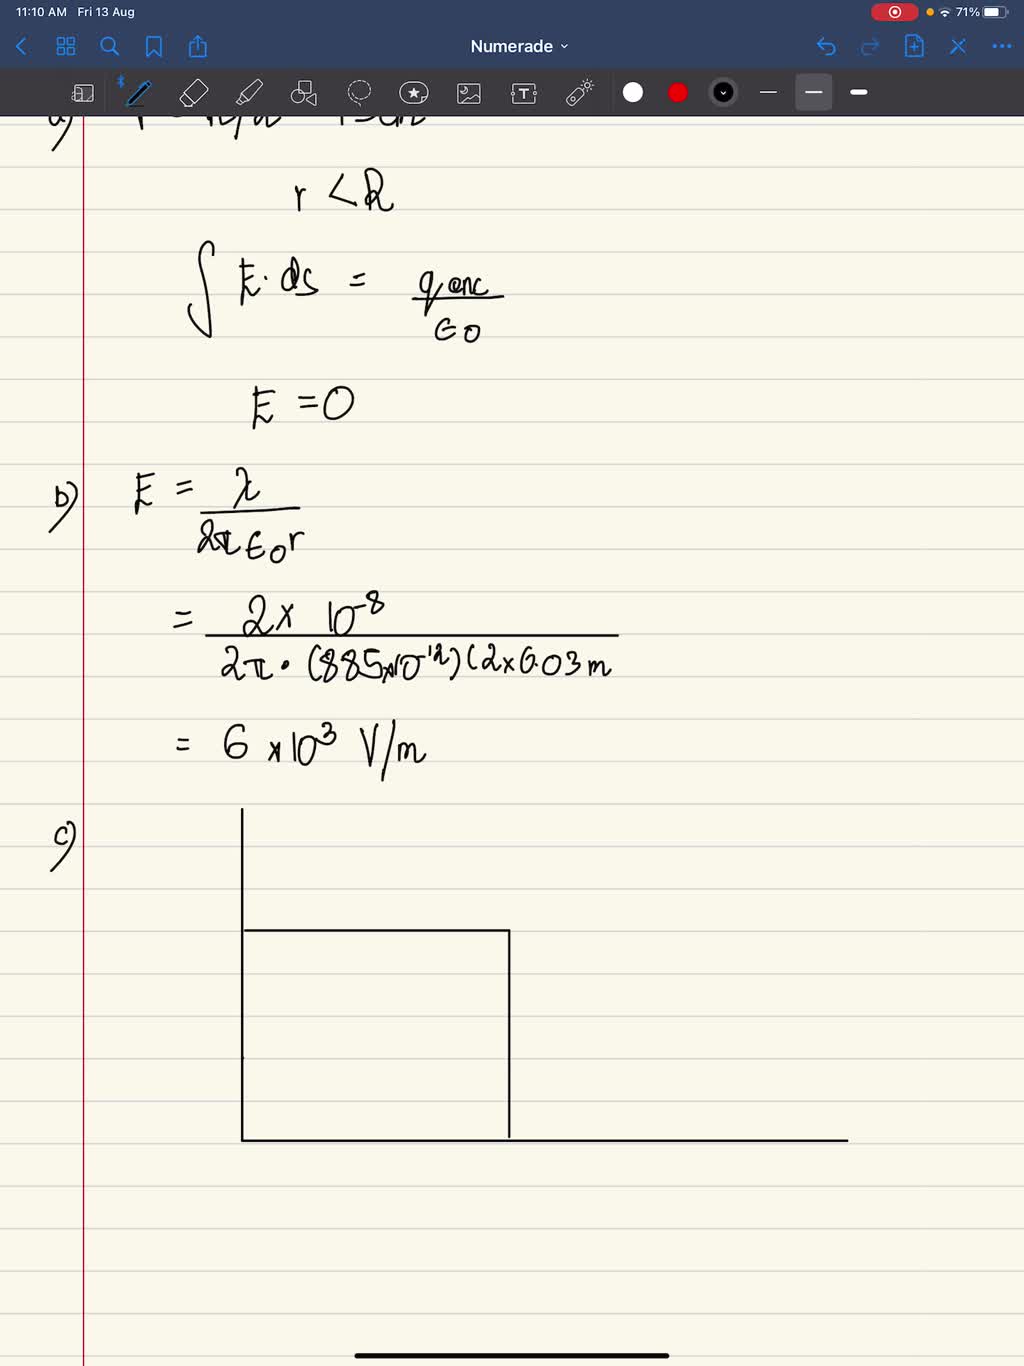 11:10 AM Fri 13 Aug 71%
Numerade
a)
r < R
∫ E · ds = q enc / ε0
E = 0
b) E = λ / 2π ε0 r
= 2 × 10^-8 / 2π · (885×10^-12) (2×0.03 m
= 6 × 10^3 V/m
c)